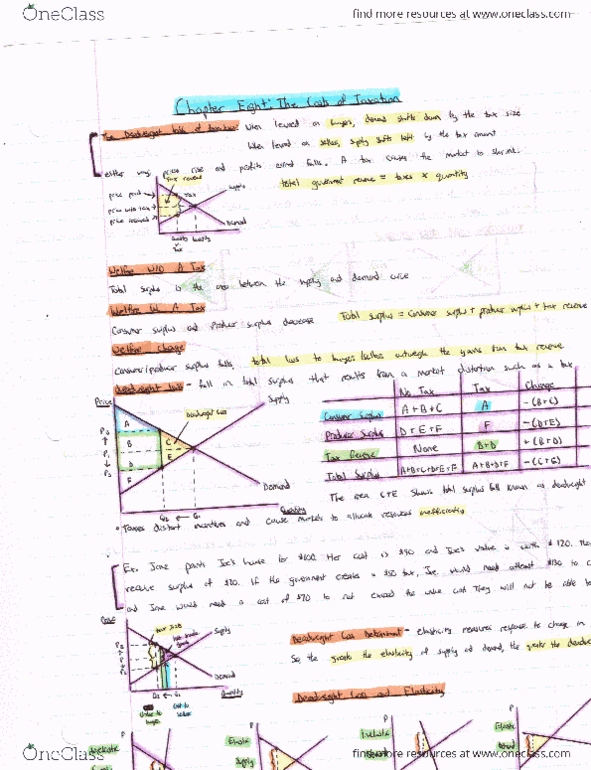 OneClass
find more resources at www.oneclass.com
Chapter Eight: The Costs of Taxation
The Deadweight Loss of Taxation: When levied on buyers, demand shifts down by the tax size
When levied on sellers, supply shifts left by the tax amount
either way, prices rise and profits earned falls. A tax causes the market to shrink.
tax revenue
total government revenue = taxes x quantity
Supply
Tax
Demand
Welfare W/O A Tax
Total surplus is the area between the supply and demand curve
Welfare W. A Tax
Consumer surplus and producer surplus decrease Total surplus = consumer surplus + producer surplus + tax revenue
Welfare Change
Consumer/producer surplus falls, total loss to buyers/sellers outweigh the gains from tax revenue
Deadweight loss - fall in total surplus that results from a market distortion such as a tax
No Tax Tax Change
Consumer Surplus A+B+C A -(B+C)
Producer Surplus D+E+F F -(D+E)
Tax Revenue None B+D +(B+D)
Total Surplus A+B+C+D+E+F A+B+D+F
The area C+E shows total surplus fall known as deadweight
Price
Supply
Deadweight Loss
A
B
C
D
E
F
Demand
Quantity
Taxes distort incentives and cause markets to allocate resources inefficiently
Ex. Jane paints Joe's house for $100. Her cost is $80 and Joe's value is worth $120.
receive surplus of $20. If the government creates a $50 tax, Joe would need
and Jane would need a cost of $70 to not exceed the value cost. They will not be able
Price
tax size
Supply
Demand
Quantity
Value to buyers
Cost to sellers
Deadweight Loss Determinant - elasticity measures response to change in
So, the greater the elasticity of supply and demand, the greater the deadweight
Deadweight Loss and Elasticity
P
P
P
P
Inelastic
Supply
Elastic
Supply
Inelastic
Elastic
Demand
OneClass
find more resources at www.oneclass.com